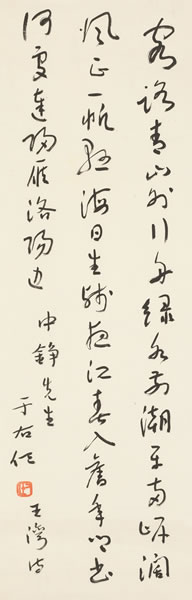 客路青山外行舟綠水前潮平兩岸闊
風正一帆懸海日生殘夜江春入舊年鄉書
何處達歸雁洛陽邊
中錚先生
于右任
王灣詩